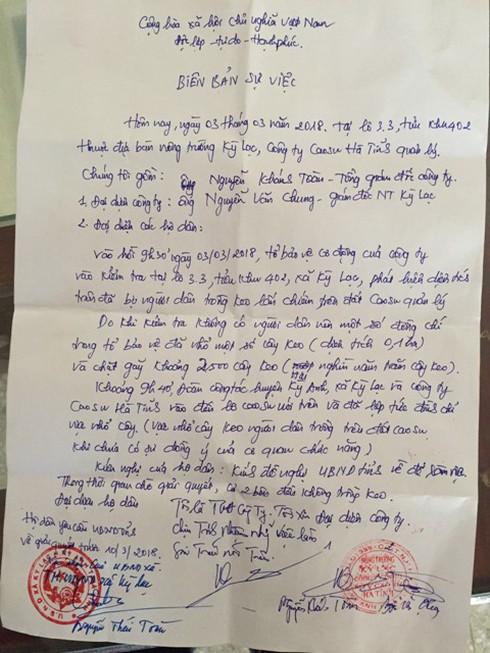 Cộng hòa xã hội chủ nghĩa Việt Nam
Độc lập - tự do - Hạnh phúc.
BIÊN BẢN SỰ VIỆC
Hôm nay, ngày 03 tháng 03 năm 2018. Tại lô 3.3, tiểu khu 402
thuộc địa bàn nông trường Kỳ Lạc, Công ty Caosu Hà Tĩnh quản lý.
Chúng tôi gồm: Ông Nguyễn Khánh Toàn - Tổng giám đốc công ty.
1. Đại diện công ty: ông Nguyễn Văn Chung - giám đốc NT Kỳ Lạc
2. Đại diện các hộ dân:
Vào hồi 9h30' ngày 03/03/2018, tổ bảo vệ cơ động của công ty
vào kiểm tra tại lô 3.3, tiểu khu 402, xã Kỳ Lạc, phát hiện diện tích
trên đã bị người dân trồng keo lấn chiếm trên đất Caosu quản lý
Do khi kiểm tra không có người dân nên một số đồng chí
trong tổ bảo vệ đã nhổ một số cây keo (diện tích 0,1 ha)
và chặt gãy khoảng 2500 cây keo (hai nghìn năm trăm cây keo).
Khoảng 9h40', Đoàn công tác huyện Kỳ Anh, xã Kỳ Lạc và công ty
Caosu Hà Tĩnh vào đến lô caosu nói trên và đã lập tức đình chỉ
việc nhổ cây. (Việc nhổ cây keo người dân trồng trên đất caosu
khi chưa có sự đồng ý của cơ quan chức năng)
Kiến nghị của hộ dân: Kính đề nghị UBND tỉnh về để
Trong thời gian chờ giải quyết, cả 2 bên đều không trồng keo.
Đại diện hộ dân
Đại diện công ty.
Hộ dân yêu cầu UBND tỉnh
về giải quyết trước 10/3/2018.
UBND xã
Nguyễn Thái Toàn